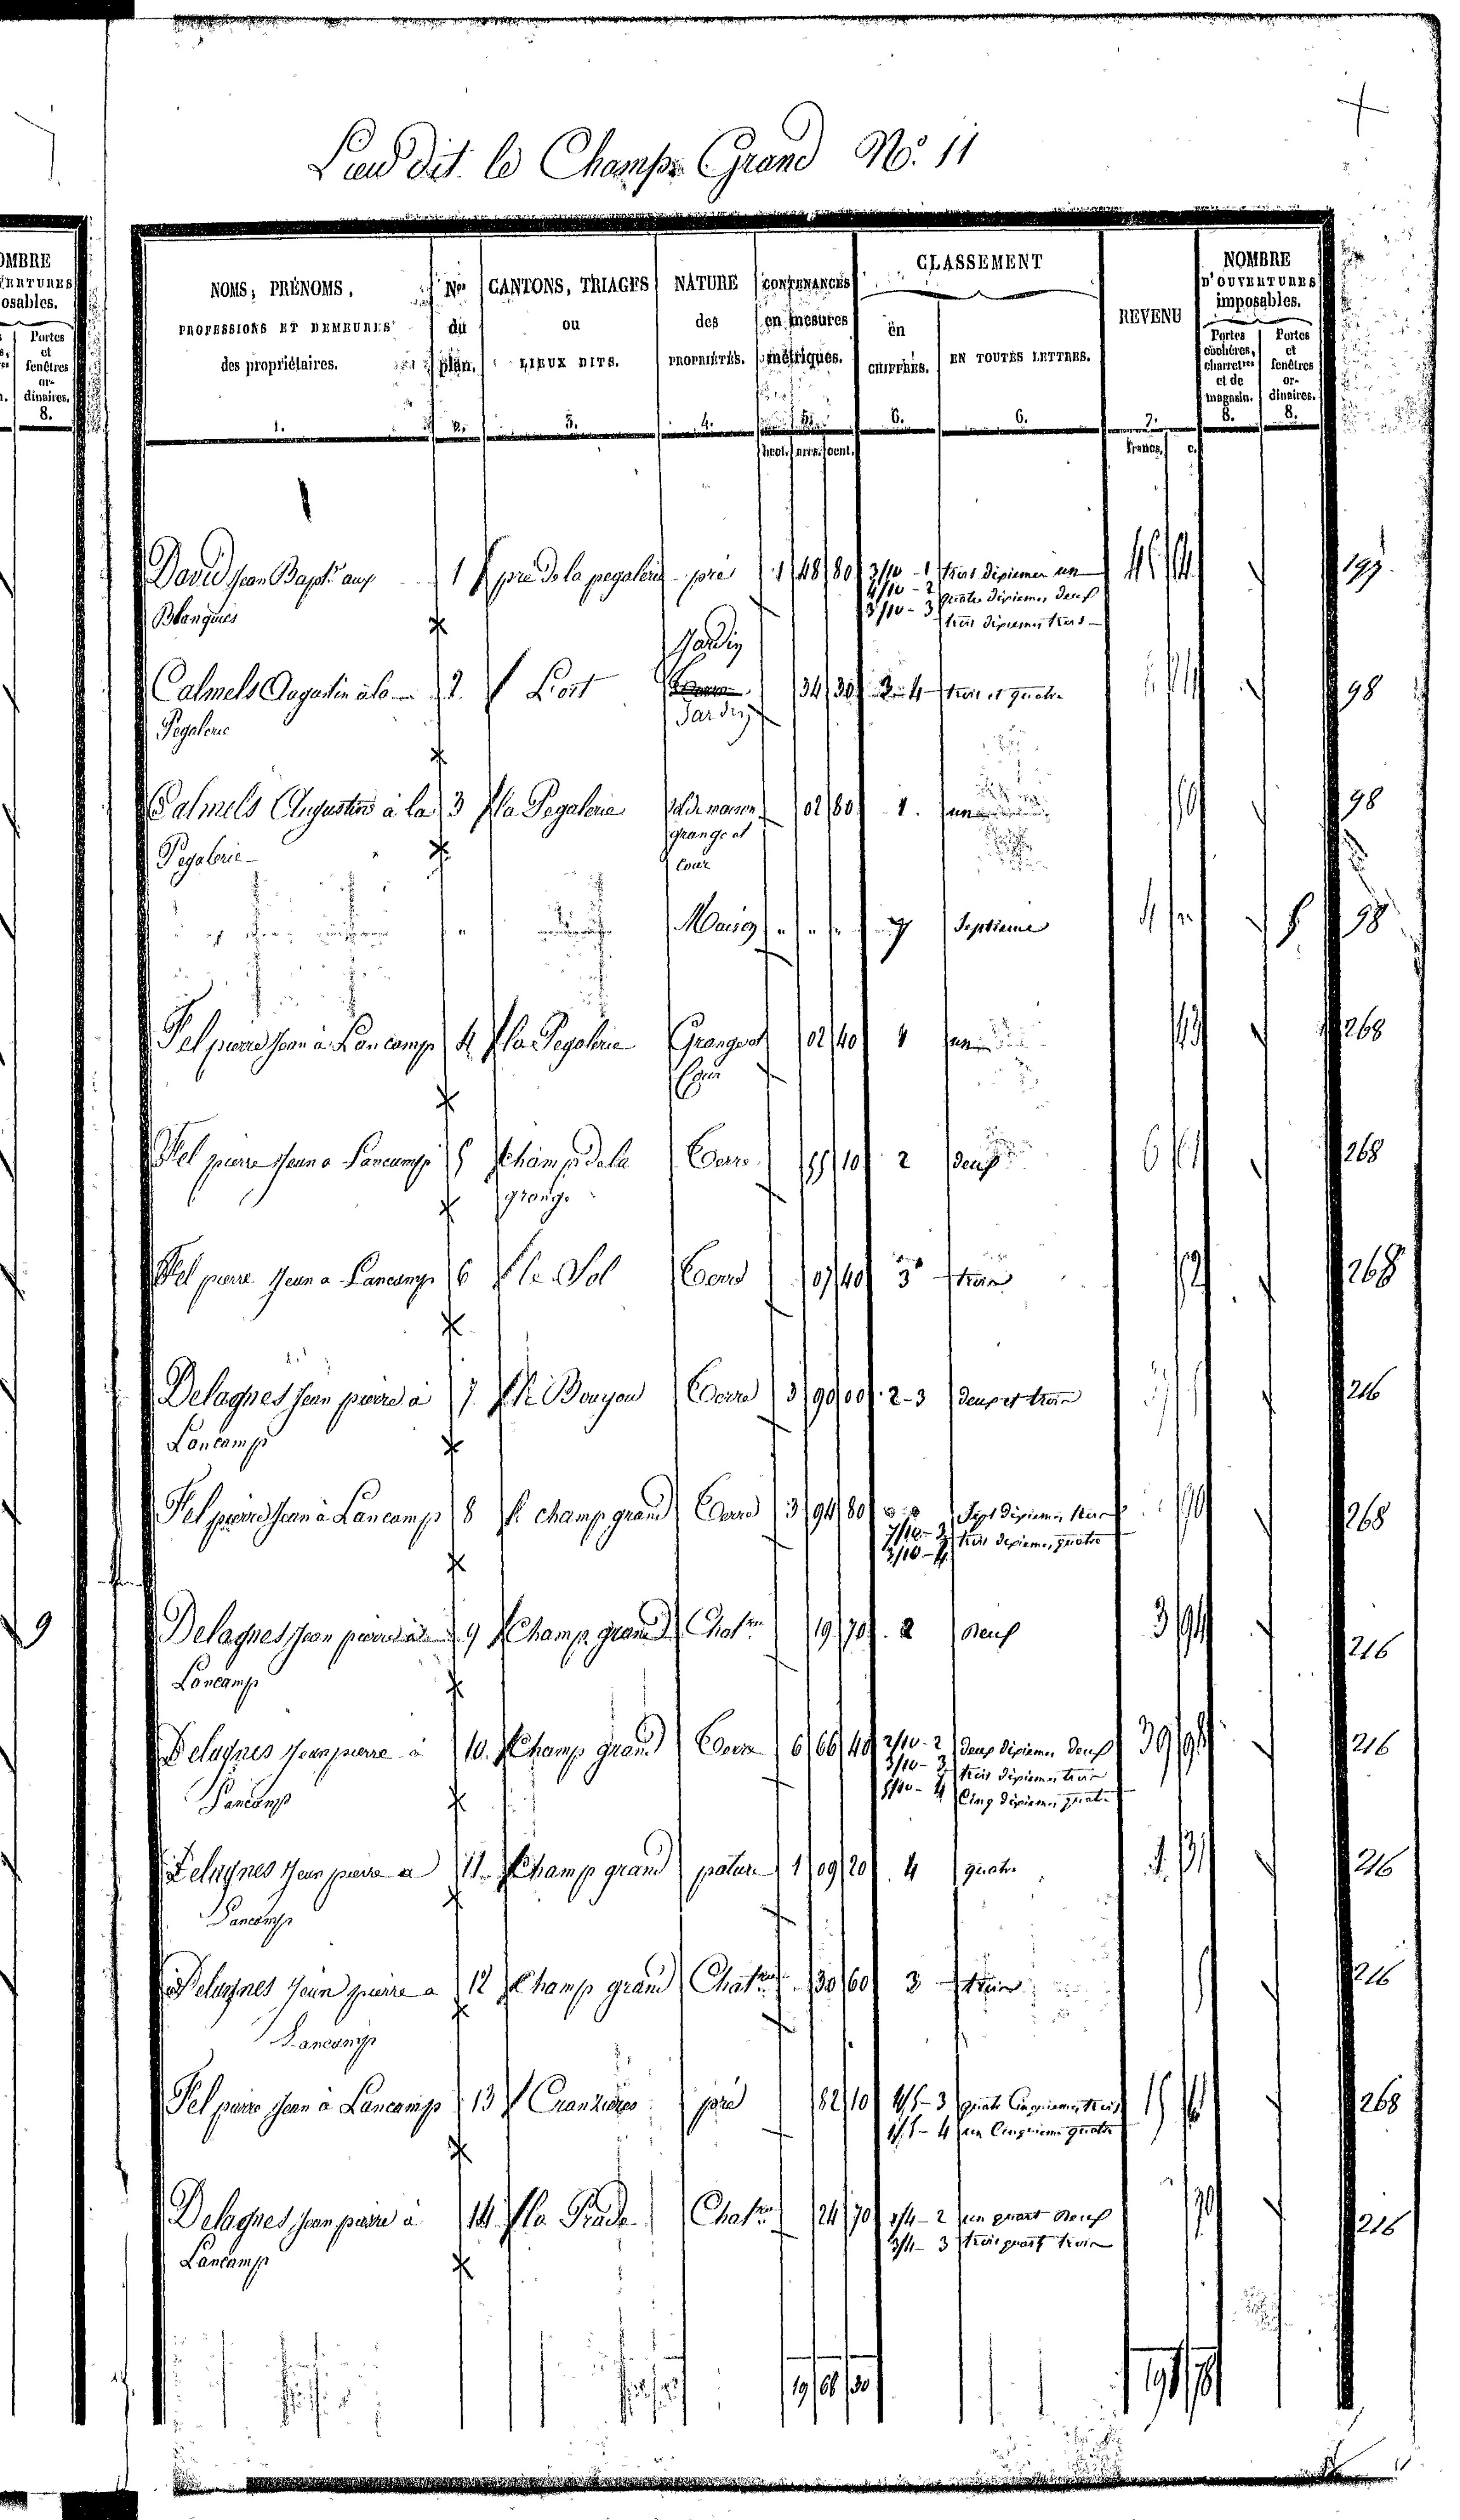 Lieu dit le Champ Grand No. 11
OMBRE
osables.
Portes
et
fenêtres
or-
dinaires.
8.
NOMS, PRÉNOMS,
PROFESSIONS ET DEMEURES
des propriétaires.
1.
Nos
du
plan.
2.
CANTONS, TRIAGES
ou
LIEUX DITS.
3.
NATURE
des
PROPRIÉTÉS.
4.
CONTENANCES
en mesures
métriques.
5.
CLASSEMENT
en
CHIFFRES.
6.
EN TOUTES LETTRES.
6.
REVENU
7.
NOMBRE
D'OUVERTURES
imposables.
Portes
cochères,
charretres
et de
magasin.
8.
Portes
et
fenêtres
or-
dinaires.
8.
hect. ares. cent. Francs. c.
David Jean Baptte aux 1 pré de la pegalerie pré 1 48 80 3/10 - 1 trois dixiemes un 197
4/10 - 2 quatre dixiemes deux
Blanquies 3/10 - 3 trois dixiemes trois
Jardin
Calmels Augustin à la 2 Lort 34 30 3-4 trois et quatre 98
Pegalerie Jardin
Calmels Augustin à la 3 la Pegalerie Sol de maison 02 80 1. un 98
grange et
Pegalerie Cour
Maison 7 Septieme 98
Pel pierre Jean à Lancamp 4 la Pegalerie Grange et 02 40 1 un 13 268
Cour
Pel pierre Jean a Lancamp 5 Champ de la Terre 55 10 2 deux 268
grange
Pel pierre Jean a Lancamp 6 le Sol Terre 07 40 3 trois 268
Delagnes Jean pierre à 7 le Bouyou Terre 3 90 00 2-3 deux et trois 216
Loncamp
Pel pierre Jean à Lancamp 8 le champ grand Terre 3 94 80 Sept dixiemes trois 268
7/10 - 3 trois dixiemes quatre
3/10 - 4
9
Delagnes Jean pierre à 9 Champ grand Chatre 19 70 2 deux 3 94 216
Loncamp
Delagnes Jean pierre à 10. Champ grand Terre 6 66 40 2/10 - 2 deux dixiemes deux 39 98 216
3/10 - 3 trois dixiemes trois
Lancamp 5/10 - 4 Cinq dixiemes quatre
Delagnes Jean pierre a 11. Champ grand pature 1 09 20 4 quatre 1 31 216
Lancamp
Delagnes Jean pierre a 12 Champ grand Chatre 30 60 3 trois 216
Lancamp
Pel pierre Jean à Lancamp 13 pré 82 10 4/5 - 3 quatre Cinquiemes trois 268
1/5 - 4 un Cinquieme quatre
Delagnes Jean pierre à 14 la Prade Chatre 24 70 1/4 - 2 un quart deux 216
Lancamp 3/4 - 3 trois quart trois
19 68 30